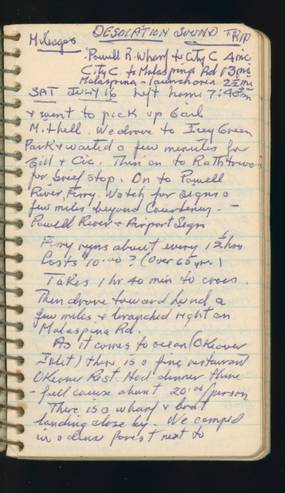 DESOLATION SOUND TRIP
Mileages
Powell R. Wharf to City C 4mi
City C. to Malaspina Rd 13mi
Malaspina - launch area 2½mi
SAT JULY 16 Left home 7:45am
& went to pick up Gail
Mitchell. We drove to Ivey Green
Park & waited a few minutes for
Gill & Cic. Then on to Rathtrevor
for brief stop. On to Powell
River Ferry. Watch for signs a
few miles beyond Courtenay. -
Powell River & Airport Signs
Ferry runs about every 1½ hrs
Costs $10.00? (Over 65 yrs)
Takes 1 hr 20 min to cross.
Then drove toward Lund a
few miles & branched right on
Malaspina Rd.
As it comes to ocean (Okeover
Inlet) there is a fine restaurant
Okeover Rest. Had dinner there
- full course about 20.00/person
There is a wharf & boat
landing close by. We camped
in a dense forest next to